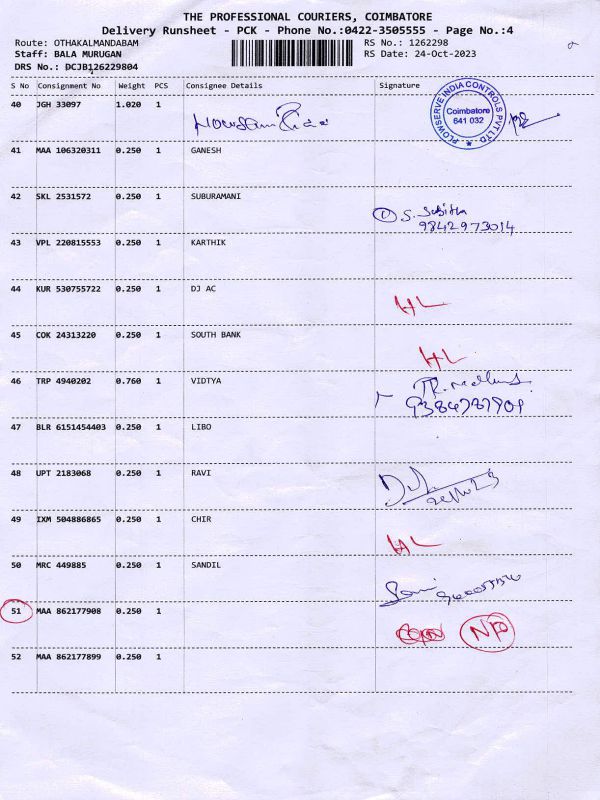 THE PROFESSIONAL COURIERS, COIMBATORE
Delivery Runsheet - PCK - Phone No.:0422-3505555 - Page No.:4
Route: OTHAKALMANDABAM RS No.: 1262298
Staff: BALA MURUGAN RS Date: 24-Oct-2023
DRS No.: DCJB126229804
S No Consignment No Weight PCS Consignee Details Signature
40 JGH 33097 1.020 1
FLOWSERVE INDIA CONTROLS PVT LTD
Coimbatore
641 032
41 MAA 106320311 0.250 1 GANESH
42 SKL 2531572 0.250 1 SUBURAMANI
1 S. Sabitha
9842973014
43 VPL 220815553 0.250 1 KARTHIK
44 KUR 530755722 0.250 1 DJ AC
HL
45 COK 24313220 0.250 1 SOUTH BANK
HL
46 TRP 4940202 0.760 1 VIDTYA
47 BLR 6151454403 0.250 1 LIBO
48 UPT 2183068 0.250 1 RAVI
49 IXM 504886865 0.250 1 CHIR
HL
50 MRC 449885 0.250 1 SANDIL
51 MAA 862177908 0.250 1
NP
52 MAA 862177899 0.250 1